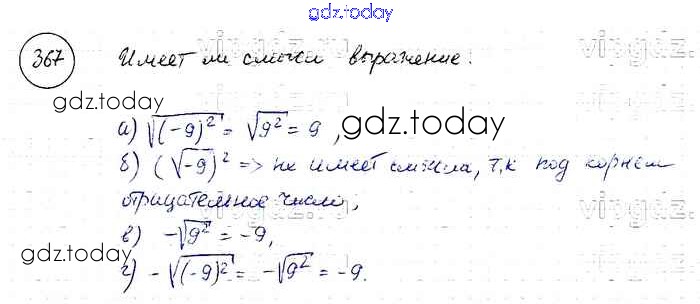 gdz.today
367 Имеет ли смысл выражение:
gdz.today
а) √(-9)² = √9² = 9, gdz.today
б) (√-9)² => не имеет смысла, т.к под корнем
отрицательное число,
gdz.today
в) -√9² = -9,
г) -√(-9)² = -√9² = -9.
gdz.today